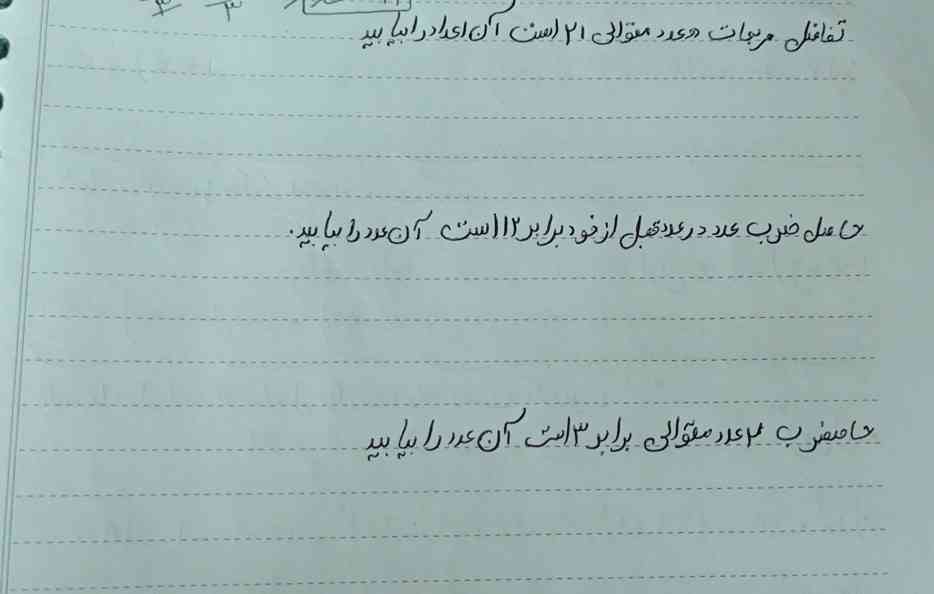 تفاضل مربعات دو عدد متوالی ۲۱ است آن اعداد را بیابید
حاصل ضرب عدد در عدد قبل از خود برابر ۱۲ است آن عدد را بیابید.
حاصضرب ۲ عدد متوالی برابر ۳ است آن عدد را بیابید